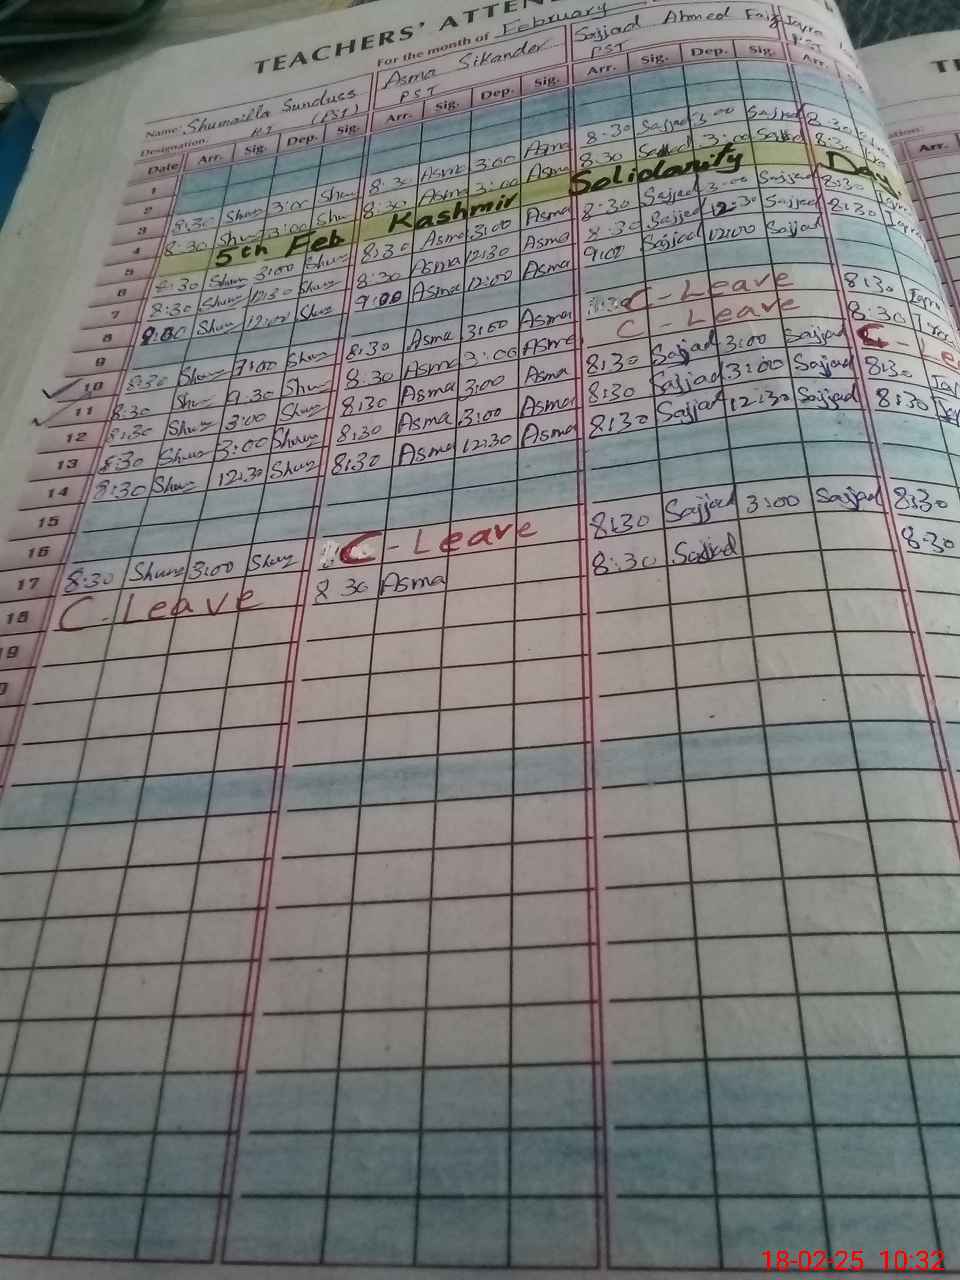 TEACHERS' ATTEN
For the month of February
Name Shumailla Sunduss Asma Sikander Sajjad Ahmed Faiz Iqra
Designation (PST) PST PST PST
Date Arr. Sig. Dep. Sig. Arr. Sig. Dep. Sig. Arr. Sig. Dep. Sig. Arr.
1
2
3 8:30 Shum 3:00 Shum 8:30 Asma 3:00 Asma 8:30 Sajjad 3:00 Sajjad 8:30
4 8:30 Shum 3:00 Shum 8:30 Asma 3:00 Asma 8:30 Sajjad 3:00 Sajjad 8:30
5 5th Feb Kashmir Solidarity Day
6 8:30 Shum 3:00 Shum 8:30 Asma 3:00 Asma 8:30 Sajjad 3:00 Sajjad 8:30 Iqra
7 8:30 Shum 12:30 Shum 8:30 Asma 12:30 Asma 8:30 Sajjad 12:30 Sajjad 8:30 Iqra
8 9:00 Shum 12:00 Shum 9:00 Asma 12:00 Asma 9:00 Sajjad 12:00 Sajjad
9
10 8:30 Shum 7:00 Shum 8:30 Asma 3:00 Asma C-Leave 8:30 Iqra
11 8:30 Shum 9:30 Shum 8:30 Asma 3:00 Asma C-Leave 8:30 Iqra
12 8:30 Shum 3:00 Shum 8:30 Asma 3:00 Asma 8:30 Sajjad 3:00 Sajjad C-Le
13 8:30 Shum 3:00 Shum 8:30 Asma 3:00 Asma 8:30 Sajjad 3:00 Sajjad 8:30
14 8:30 Shum 12:30 Shum 8:30 Asma 12:30 Asma 8:30 Sajjad 12:30 Sajjad 8:30
15
16
17 8:30 Shum 3:00 Shum C-Leave 8:30 Sajjad 3:00 Sajjad 8:30
18 C-Leave 8:30 Asma 8:30 Sajjad 8:30
19
T
Arr.
18-02-25 10:32